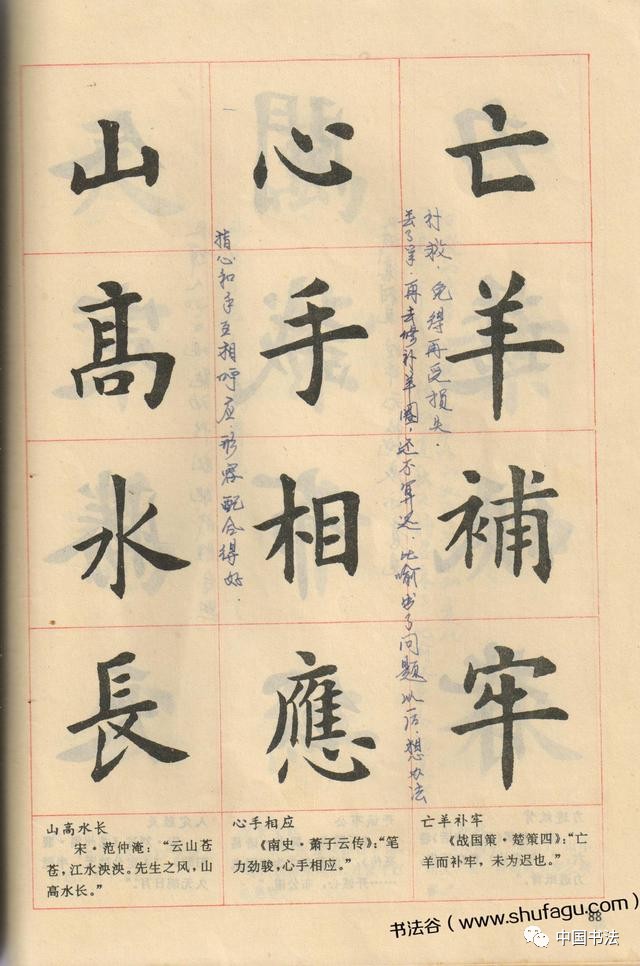 亡羊補牢
丢了羊．再去修补羊圈，还不算迟．比喻出了问题以后．想办法
补救．免得再受损失．
心手相應
指心和手互相呼应．形容配合得好．
山髙水長
山高水长
宋·范仲淹：“云山苍
苍，江水泱泱。先生之风，山
高水长。”
心手相应
《南史·萧子云传》：“笔
力劲骏，心手相应。”
亡羊补牢
《战国策·楚策四》：“亡
羊而补牢，未为迟也。”
88
书法谷（www.shufagu.com）
中国书法